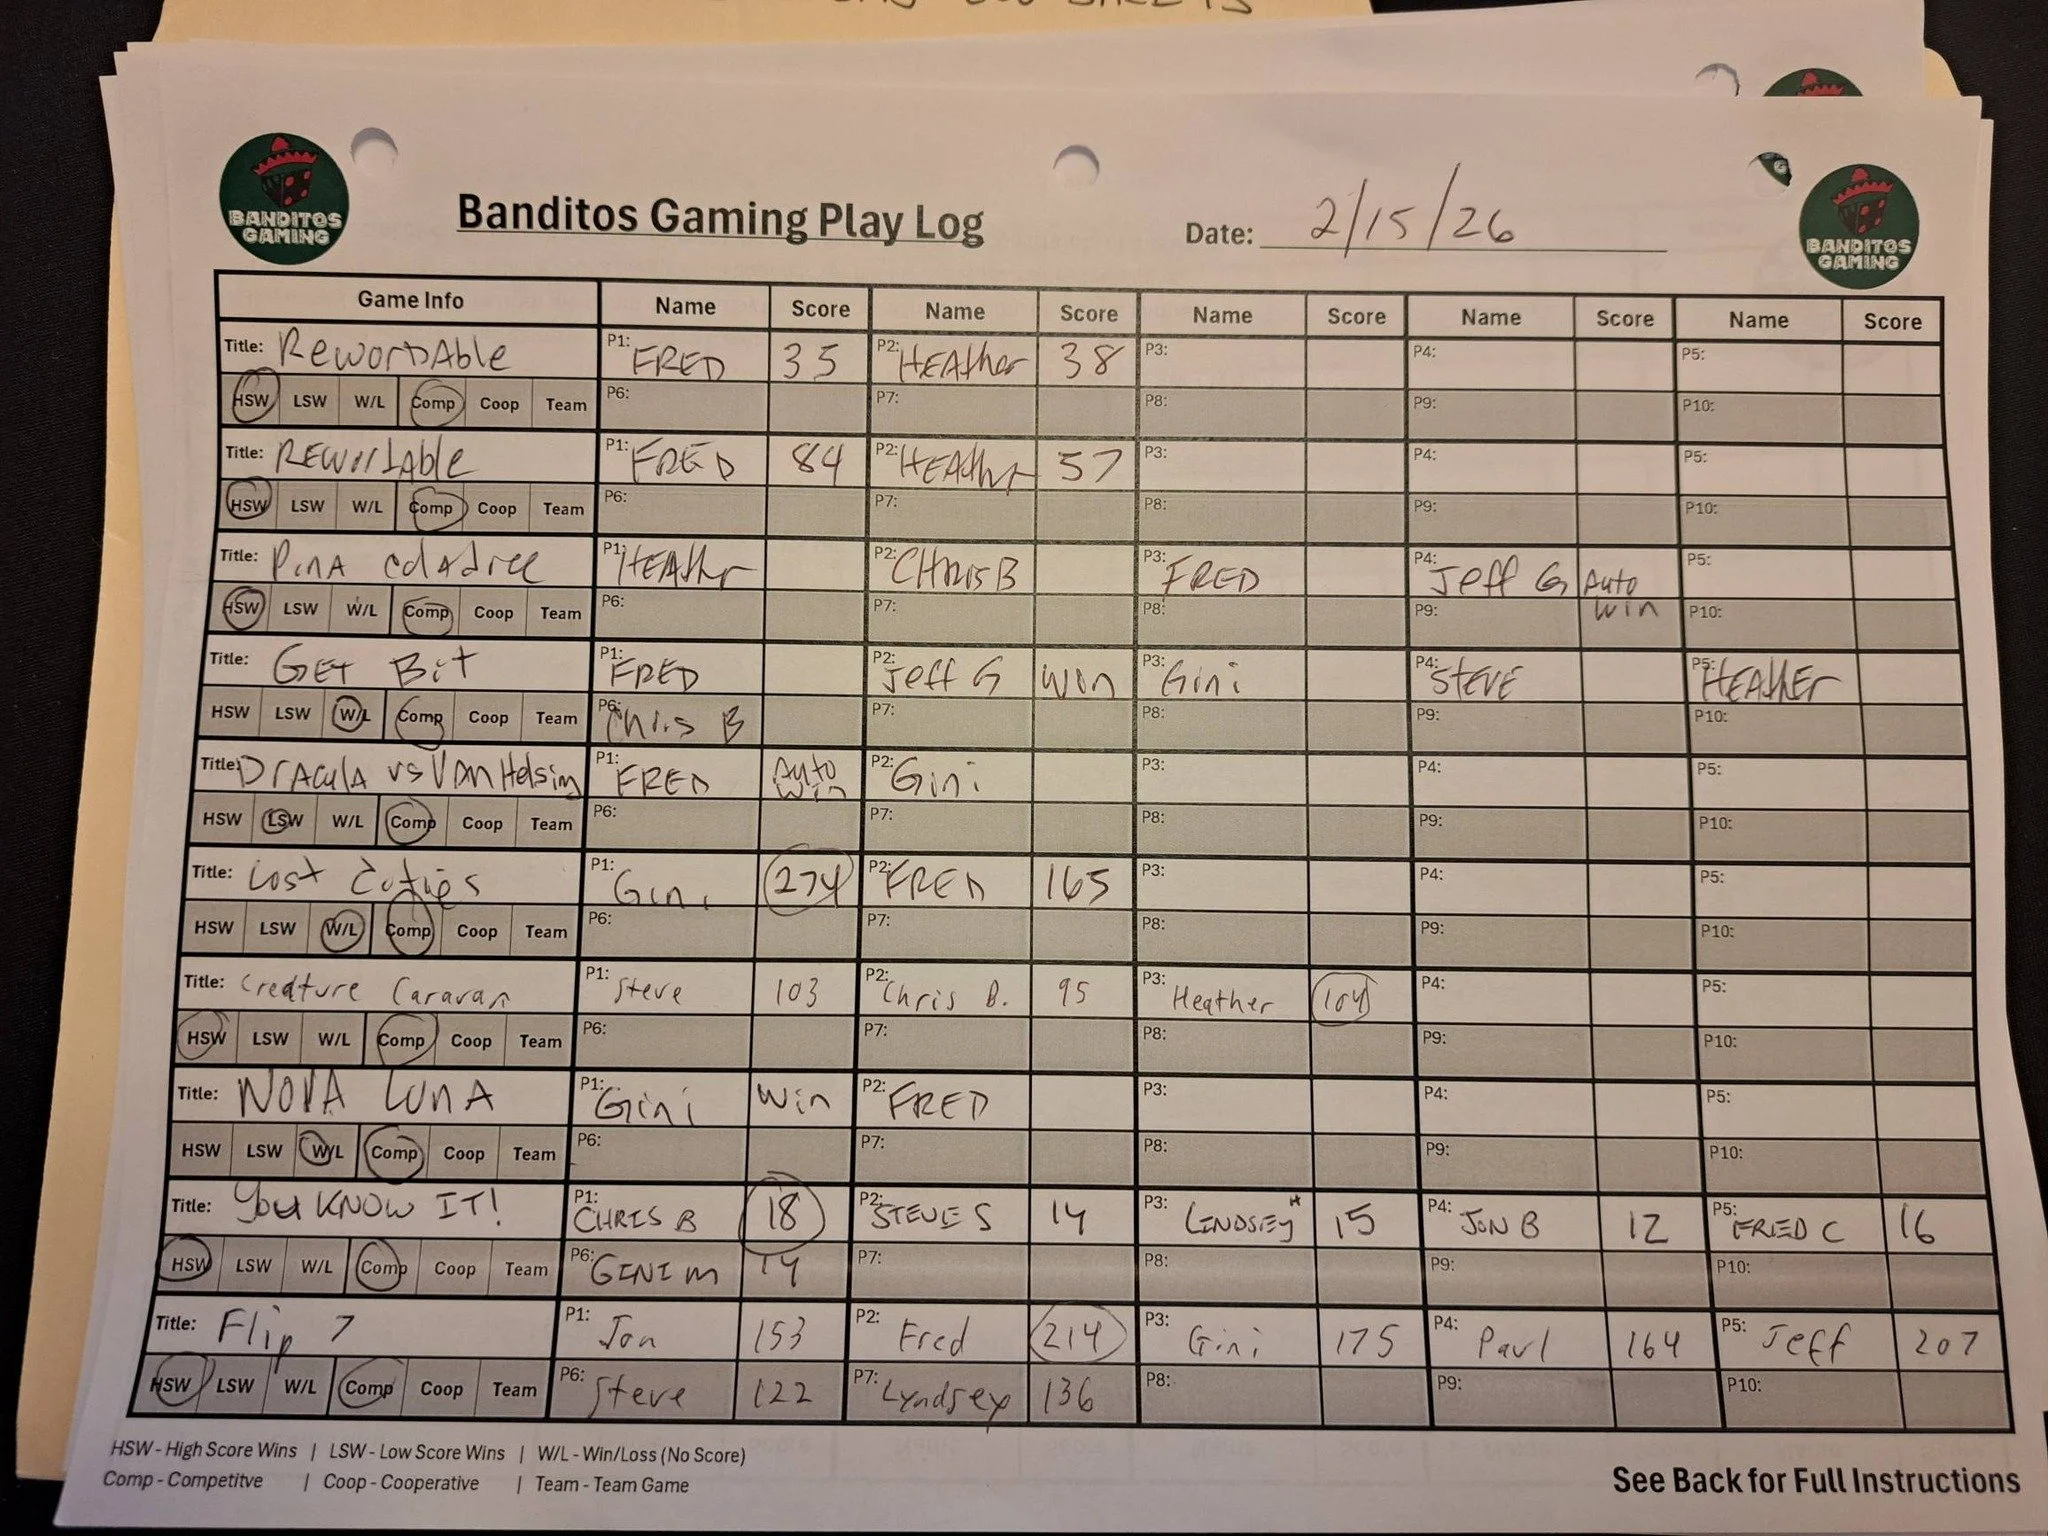 BANDITOS GAMING
Banditos Gaming Play Log
Date: 2/15/26
BANDITOS GAMING
Game Info Name Score Name Score Name Score Name Score Name Score
Title: RewordAble P1: FRED 35 P2: HEAther 38 P3: P4: P5:
HSW LSW W/L Comp Coop Team P6: P7: P8: P9: P10:
Title: REWordAble P1: FRED 84 P2: HEAther 57 P3: P4: P5:
HSW LSW W/L Comp Coop Team P6: P7: P8: P9: P10:
Title: PinA P1: HEAther P2: CHRIS B P3: FRED P4: Jeff G Auto P5:
HSW LSW W/L Comp Coop Team P6: P7: P8: P9: Win P10:
Title: GET Bit P1: FRED P2: Jeff G Win P3: Gini P4: STEVE P5: HEAthER
HSW LSW W/L Comp Coop Team P6: Chris B P7: P8: P9: P10:
Title: DrAculA vs VAn Helsing P1: FRED Auto Win P2: Gini P3: P4: P5:
HSW LSW W/L Comp Coop Team P6: P7: P8: P9: P10:
Title: Lost Cities P1: Gini 274 P2: FRED 165 P3: P4: P5:
HSW LSW W/L Comp Coop Team P6: P7: P8: P9: P10:
Title: Creature Caravan P1: Steve 103 P2: Chris B. 95 P3: Heather 104 P4: P5:
HSW LSW W/L Comp Coop Team P6: P7: P8: P9: P10:
Title: NOVA LunA P1: Gini Win P2: FRED P3: P4: P5:
HSW LSW W/L Comp Coop Team P6: P7: P8: P9: P10:
Title: You KNOW IT! P1: CHRIS B 18 P2: STEVE S 14 P3: LINDSEY H 15 P4: JON B 12 P5: FRED C 16
HSW LSW W/L Comp Coop Team P6: GINI M 14 P7: P8: P9: P10:
Title: Flip 7 P1: Jon 153 P2: Fred 214 P3: Gini 175 P4: Paul 164 P5: Jeff 207
HSW LSW W/L Comp Coop Team P6: Steve 122 P7: Lyndsey 136 P8: P9: P10:
HSW - High Score Wins | LSW - Low Score Wins | W/L - Win/Loss (No Score)
Comp - Competitve | Coop - Cooperative | Team - Team Game
See Back for Full Instructions